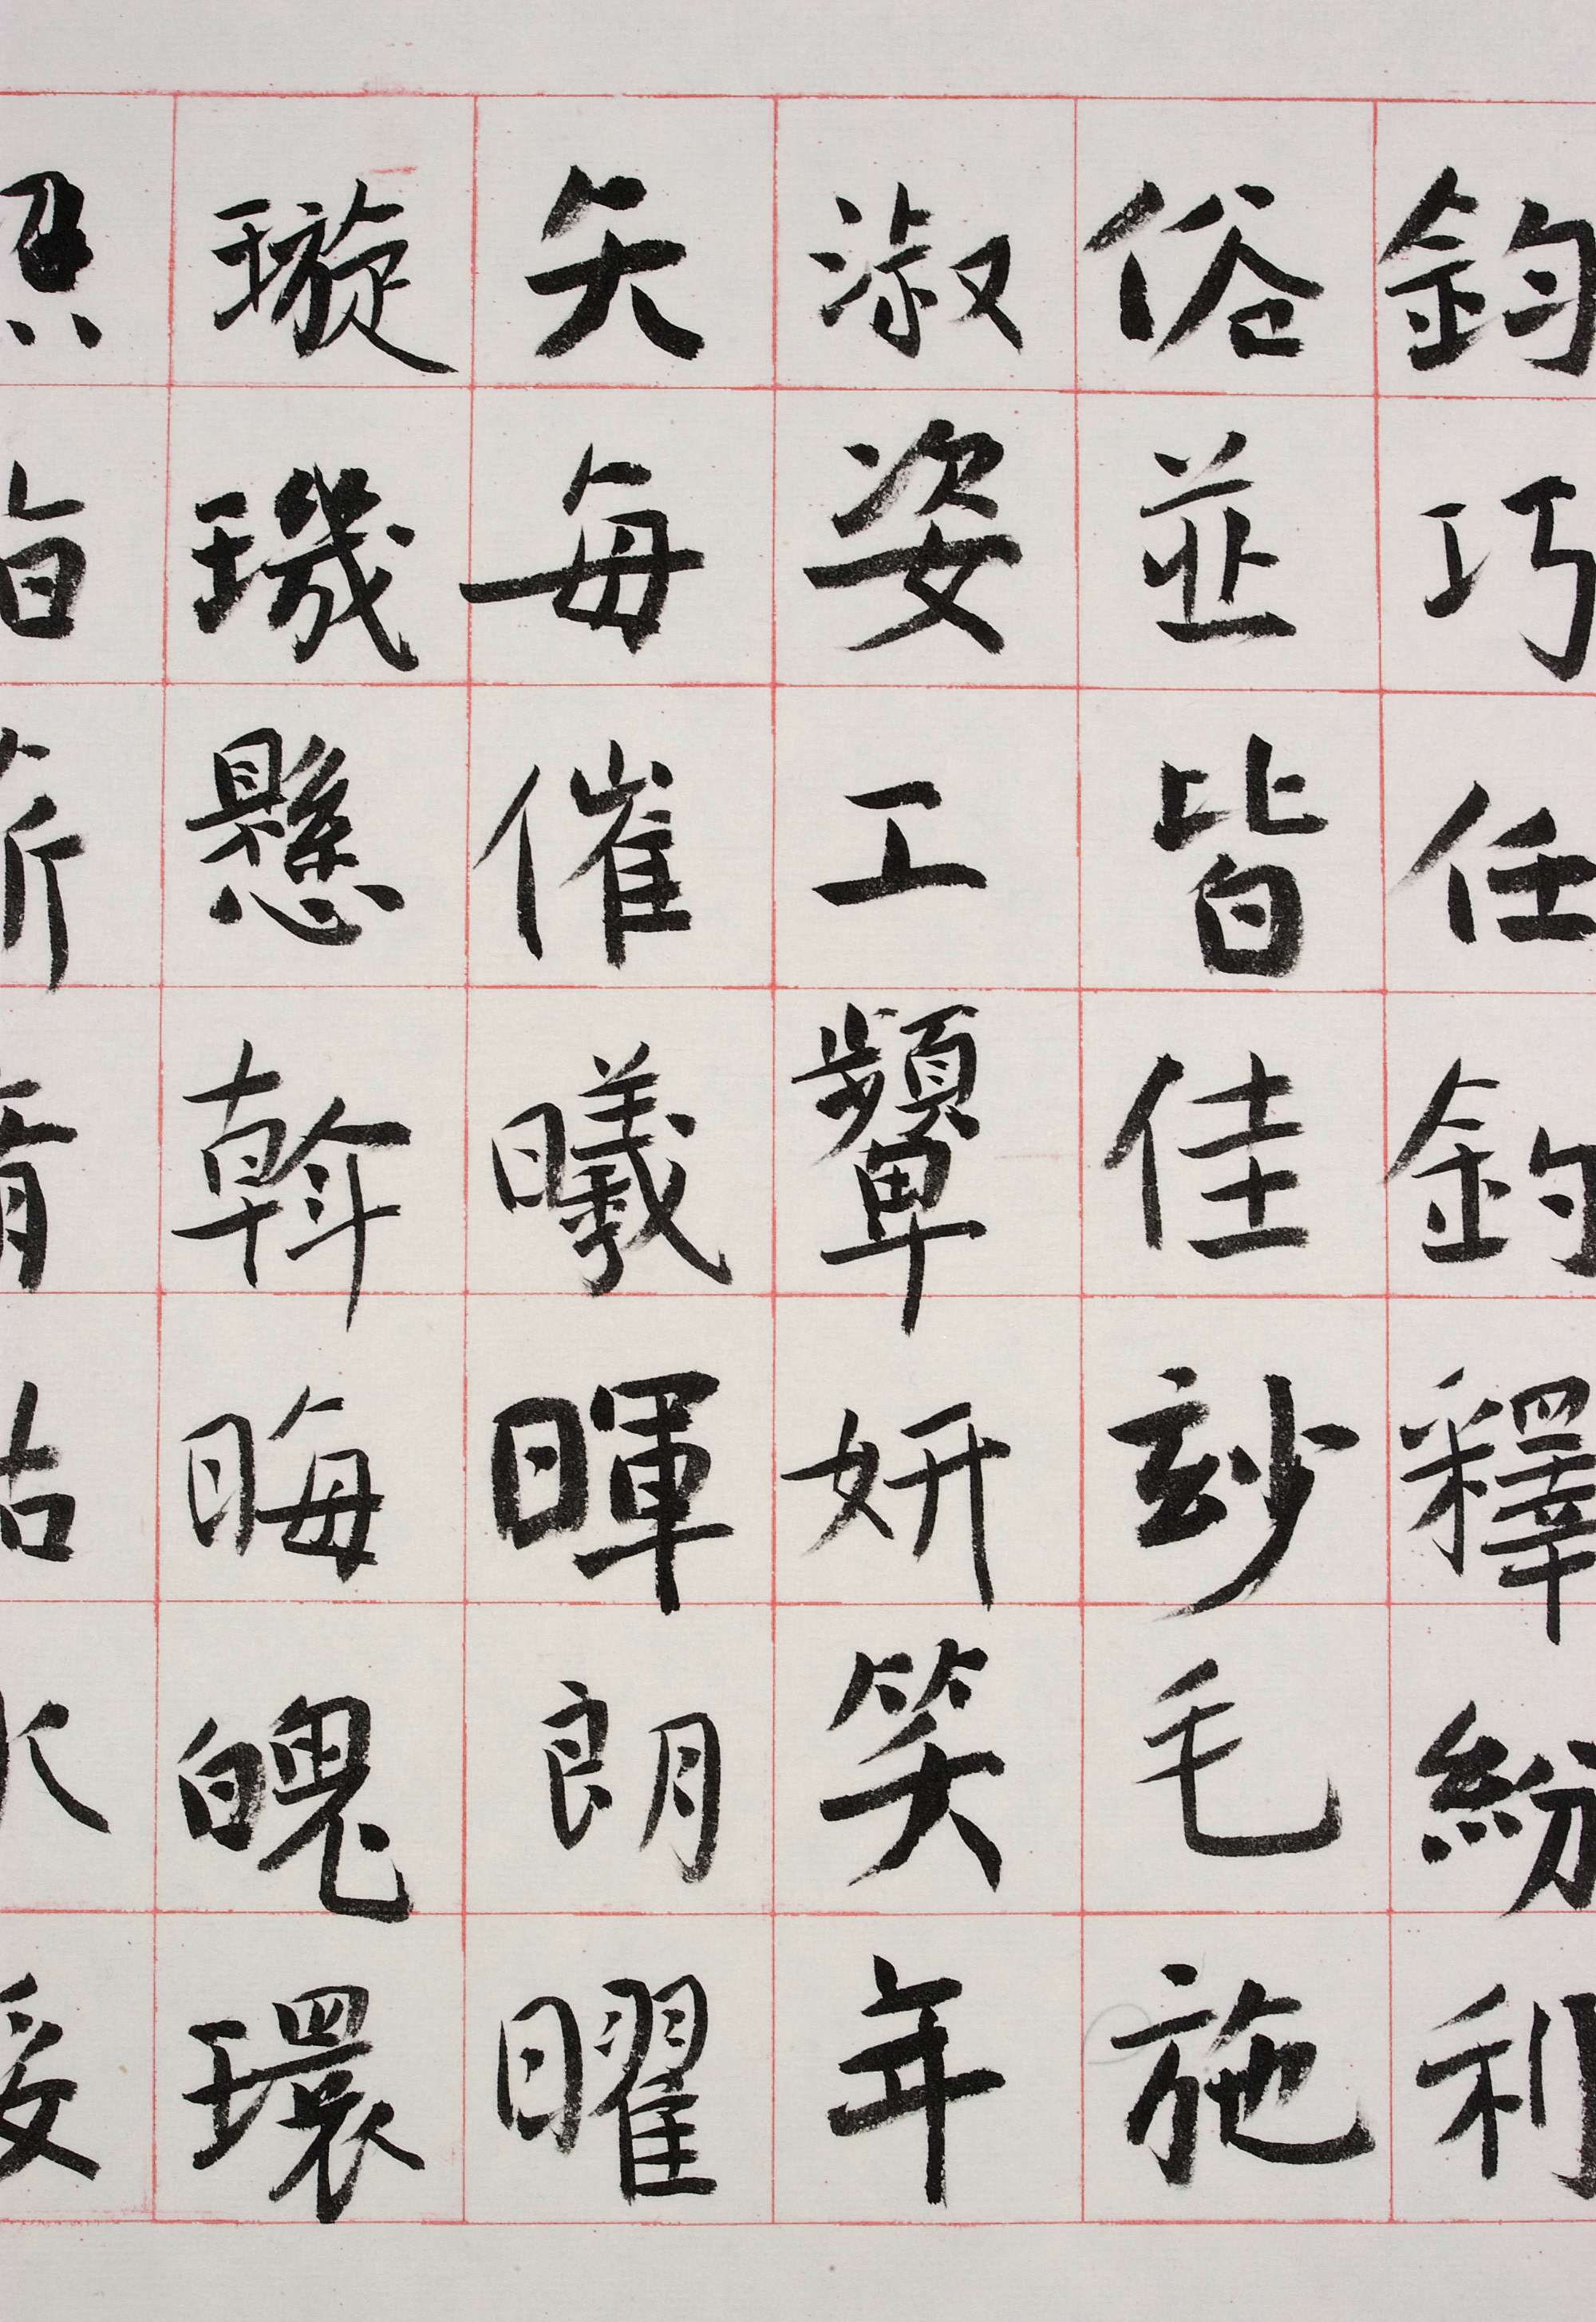 鈞巧任釣釋紛利
俗並皆佳玅毛施
淑姿工顰妍笑年
矢每催曦暉朗曜
璇璣懸斡晦魄環
照指薪脩祜永綏